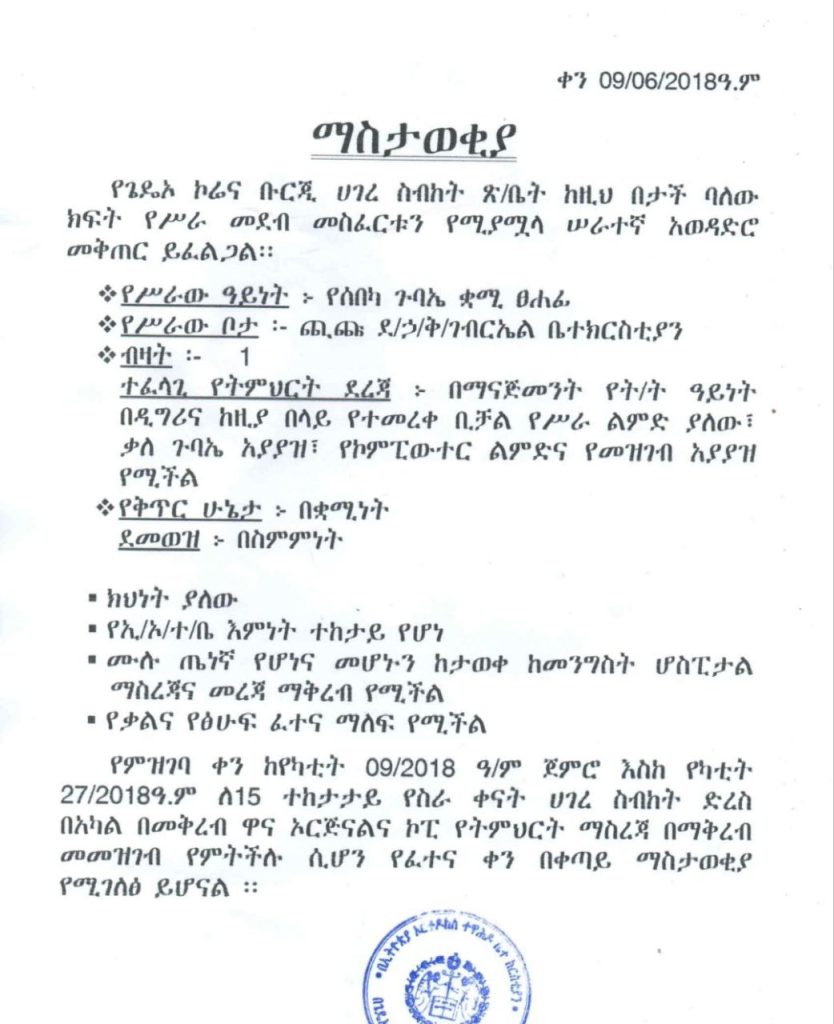 ቀን 09/06/2018ዓ.ም
ማስታወቂያ
የጌዴኦ ኮሬና ቡርጂ ሀገረ ስብከት ጽ/ቤት ከዚህ በታች ባለው
ክፍት የሥራ መደብ መስፈርቱን የሚያሟላ ሠራተኛ አወዳድሮ
መቅጠር ይፈልጋል፡፡
❖የሥራው ዓይነት ፦ የሰበካ ጉባኤ ቋሚ ፀሐፊ
❖የሥራው ቦታ ፡- ጪጩ ደ/ኃ/ቅ/ገብርኤል ቤተክርስቲያን
❖ብዛት ፡- 1
ተፈላጊ የትምህርት ደረጃ ፦ በማናጅመንት የት/ት ዓይነት
በዲግሪና ከዚያ በላይ የተመረቀ ቢቻል የሥራ ልምድ ያለው፣
ቃለ ጉባኤ አያያዝ፣ የኮምፒውተር ልምድና የመዝገብ አያያዝ
የሚችል
❖የቅጥር ሁኔታ ፦ በቋሚነት
ደመወዝ ፦ በስምምነት
▪ ክህነት ያለው
▪ የኢ/ኦ/ተ/ቤ እምነት ተከታይ የሆነ
▪ ሙሉ ጤነኛ የሆነና መሆኑን ከታወቀ ከመንግስት ሆስፒታል
ማስረጃና መረጃ ማቅረብ የሚችል
▪ የቃልና የፅሁፍ ፈተና ማለፍ የሚችል
የምዝገባ ቀን ከየካቲት 09/2018 ዓ/ም ጀምሮ እስከ የካቲት
27/2018ዓ.ም ለ15 ተከታታይ የስራ ቀናት ሀገረ ስብከት ድረስ
በአካል በመቅረብ ዋና ኦርጅናልና ኮፒ የትምህርት ማስረጃ በማቅረብ
መመዝገብ የምትችሉ ሲሆን የፈተና ቀን በቀጣይ ማስታወቂያ
የሚገለፅ ይሆናል ፡፡
በኢትዮጵያ ኦርቶዶክስ ተዋሕዶ ቤተ ክርስቲያን